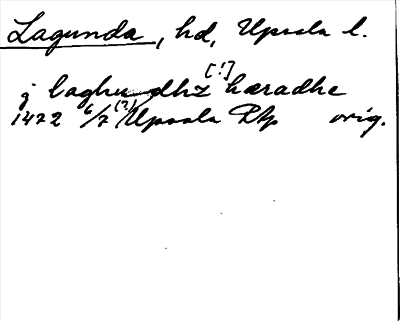 Lagunda, hd, Upsala l.
[!]
j laghundhz hæradhe
1422 6/7 (?) Upsala RAp orig.